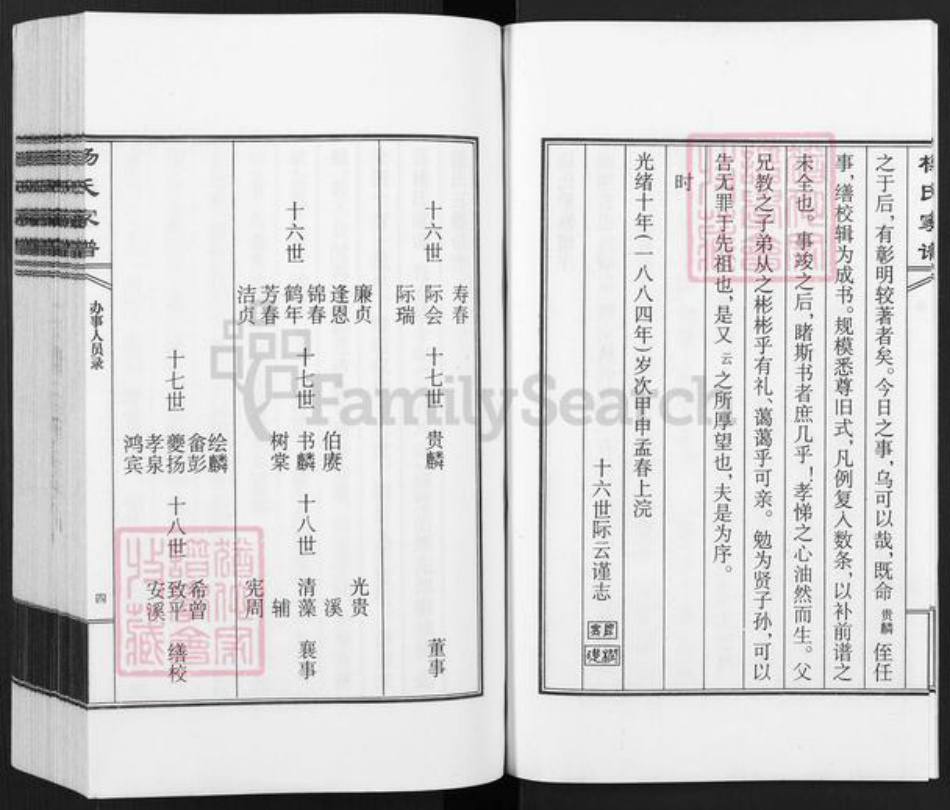 杨氏家谱
之于后，有彰明较著者矣。今日之事，乌可以哉，既命 贵麟 侄任
事，缮校辑为成书。规模悉尊旧式，凡例复入数条，以补前谱之
未全也。事竣之后，睹斯书者庶几乎！孝悌之心油然而生。父
兄教之子弟从之彬彬乎有礼、蔼蔼乎可亲。勉为贤子孙，可以
告无罪于先祖也，是又 云 之所厚望也，夫是为序。
时
光绪十年（一八八四年）岁次甲申孟春上浣
十六世际云谨志
寿春
十六世 际会 十七世 贵麟 董事
际瑞
廉贞
逢恩 伯赓 光贵
锦春 溪
十六世 鹤年 十七世 书麟 十八世 清藻 襄事
芳春 树棠 辅
洁贞 宪周
绘麟
畲彭 希曾
十七世 夔扬 十八世 致平 缮校
孝泉 安溪
鸿宾
杨氏家谱
办事人员录
四
FamilySearch